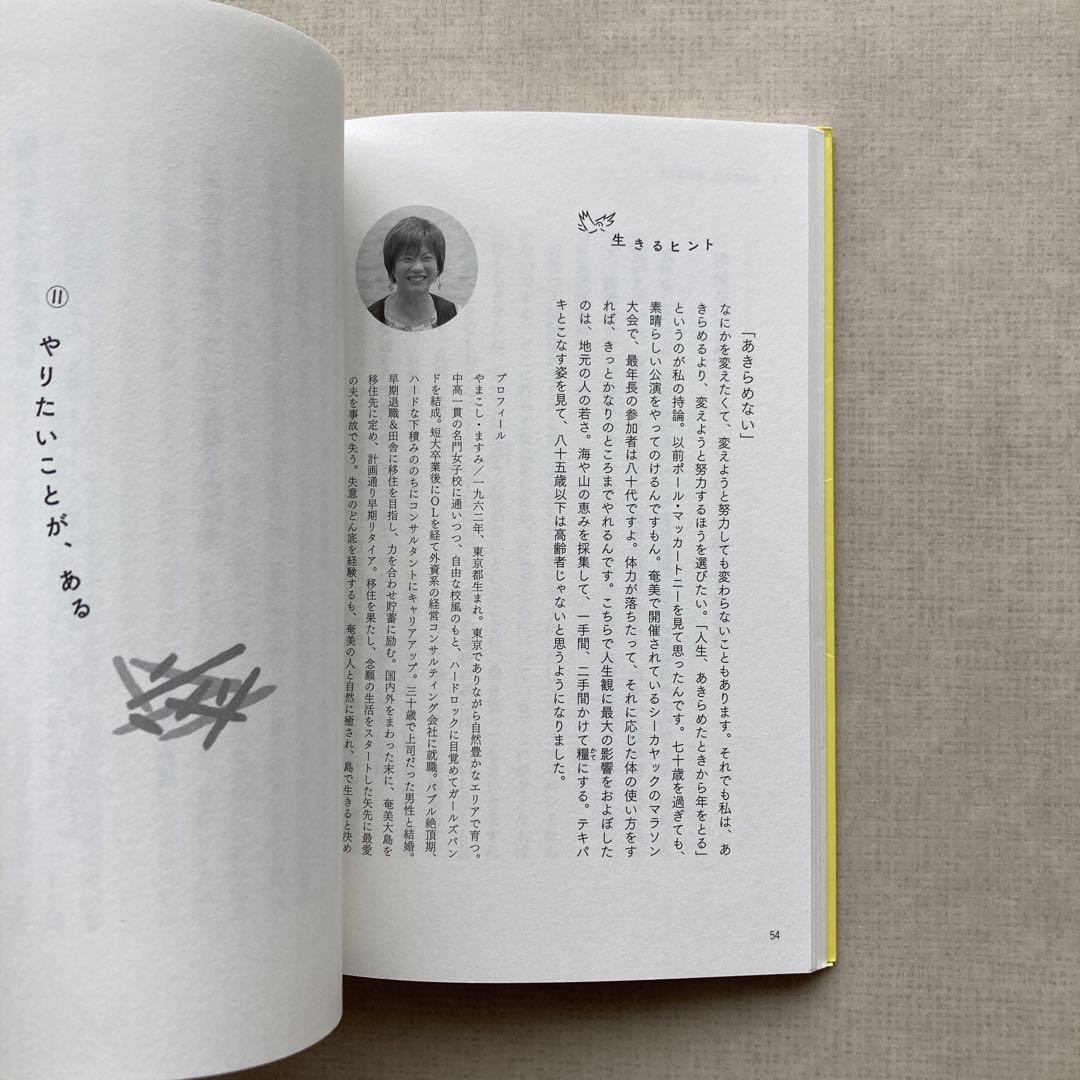 生きるヒント
「あきらめない」
なにかを変えたくて、変えようと努力しても変わらないこともあります。それでも私は、あ
きらめるより、変えようと努力するほうを選びたい。「人生、あきらめたときから年をとる」
というのが私の持論。以前ポール・マッカートニーを見て思ったんです。七十歳を過ぎても、
素晴らしい公演をやってのけるんですもん。奄美で開催されているシーカヤックのマラソン
大会で、最年長の参加者は八十代ですよ。体力が落ちたって、それに応じた体の使い方をす
れば、きっとかなりのところまでやれるんです。こちらで人生観に最大の影響をおよぼした
のは、地元の人の若さ。海や山の恵みを採集して、一手間、二手間かけて糧にする。テキパ
キとこなす姿を見て、八十五歳以下は高齢者じゃないと思うようになりました。
かて
プロフィール
やまこし・ますみ/一九六二年、東京都生まれ。東京でありながら自然豊かなエリアで育つ。
中高一貫の名門女子校に通いつつ、自由な校風のもと、ハードロックに目覚めてガールズバン
ドを結成。短大卒業後にOLを経て外資系の経営コンサルティング会社に就職。バブル絶頂期、
ハードな下積みののちにコンサルタントにキャリアアップ。三十歳で上司だった男性と結婚。
早期退職&田舎に移住を目指し、力を合わせ貯蓄に励む。国内外をまわった末に、奄美大島を
移住先に定め、計画通り早期リタイア。移住を果たし、念願の生活をスタートした矢先に最愛
の夫を事故で失う。失意のどん底を経験するも、奄美の人と自然に癒され、島で生きると決め
54
⑪ やりたいことが、ある